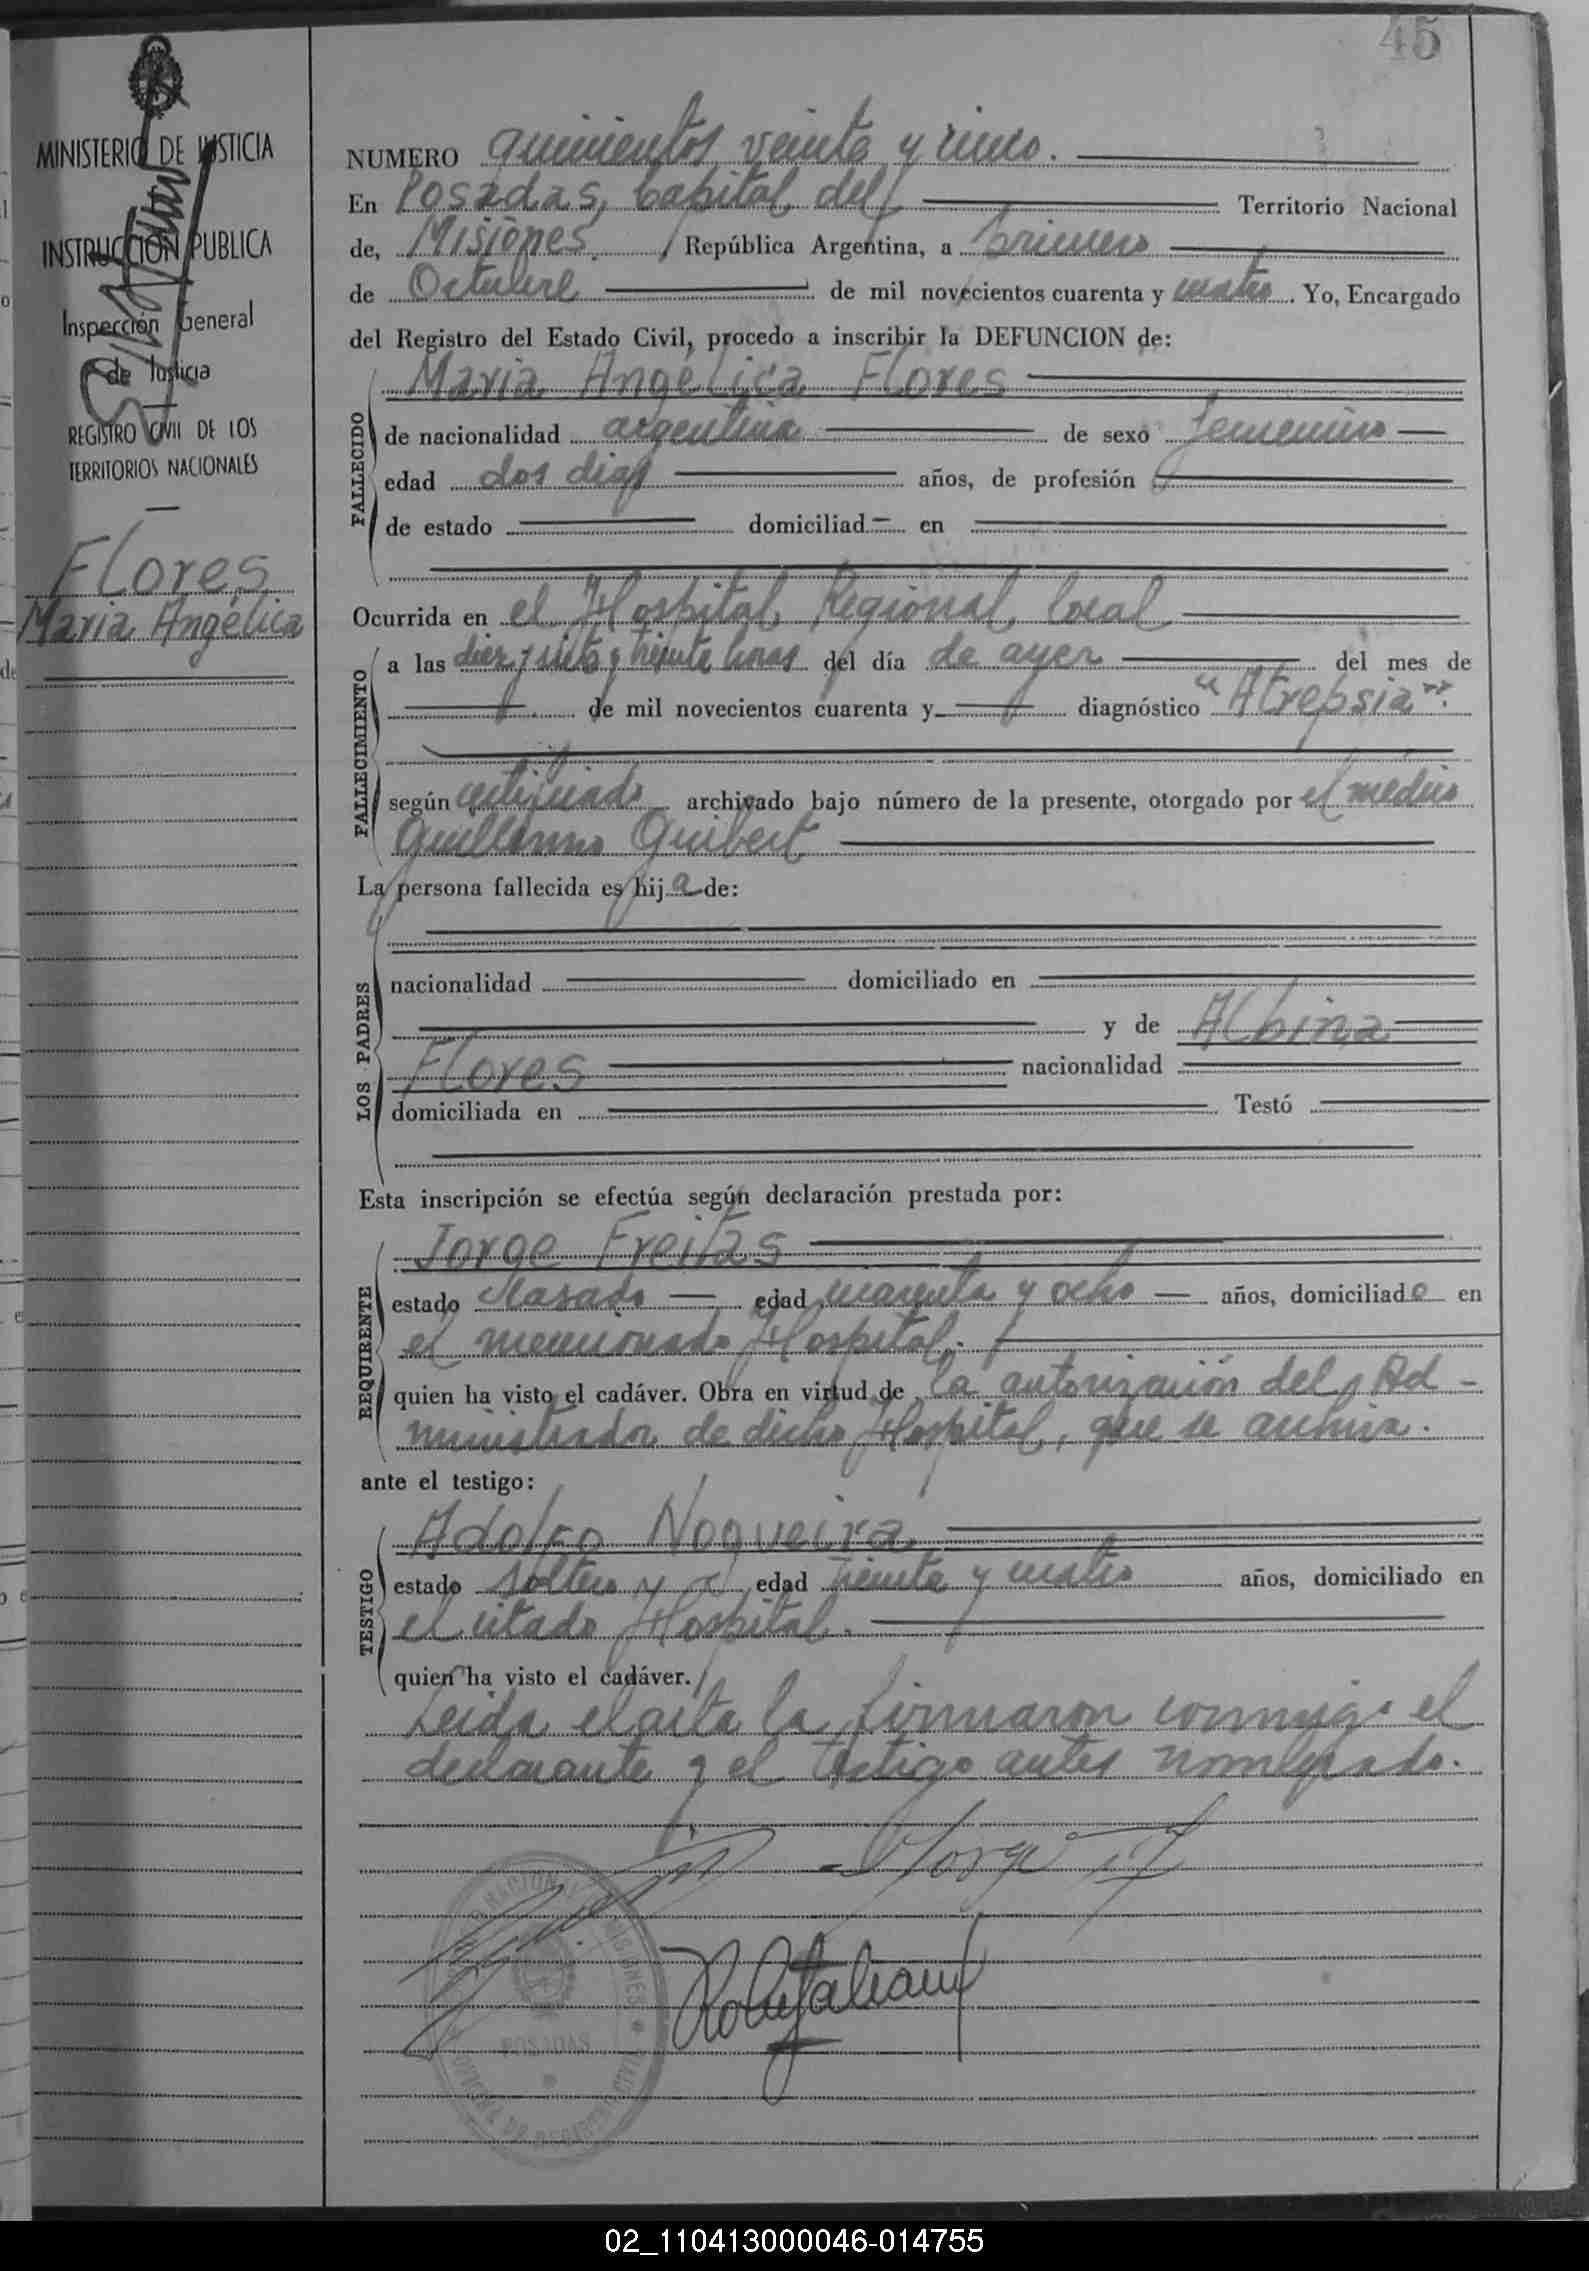 45
MINISTERIO DE JUSTICIA
INSTRUCCION PUBLICA
Inspección General
de Justicia
REGISTRO CIVIL DE LOS
TERRITORIOS NACIONALES
Flores
Maria Angélica
NUMERO quinientos veinte y cinco.
En Posadas, Capital del Territorio Nacional
de, Misiones, República Argentina, a primero
de Octubre de mil novecientos cuarenta y cuatro. Yo, Encargado
del Registro del Estado Civil, procedo a inscribir la DEFUNCION de:
FALLECIDO
Maria Angélica Flores
de nacionalidad argentina de sexo femenino
edad dos dias años, de profesión
de estado domiciliad en
Ocurrida en el Hospital Regional local
FALLECIMIENTO
a las diez y siete y treinta horas del día de ayer del mes de
de mil novecientos cuarenta y diagnóstico "Atrepsia".
según certificado archivado bajo número de la presente, otorgado por el médico
Guillermo Guibert
La persona fallecida es hija de:
LOS PADRES
nacionalidad domiciliado en
y de Albina
Flores nacionalidad
domiciliada en Testó
Esta inscripción se efectúa según declaración prestada por:
REQUIRENTE
Jorge Freitas
estado casado edad cuarenta y ocho años, domiciliado en
el mencionado Hospital.
quien ha visto el cadáver. Obra en virtud de la autorización del Ad-
ministrador de dicho Hospital, que se archiva.
ante el testigo:
TESTIGO
Adolfo Nogueira
estado soltero edad treinta y cuatro años, domiciliado en
el citado Hospital.
quien ha visto el cadáver.
Leida el acta la firmaron conmigo el
declarante y el testigo antes nombrado.
Jorge
POSADAS
02_110413000046-014755